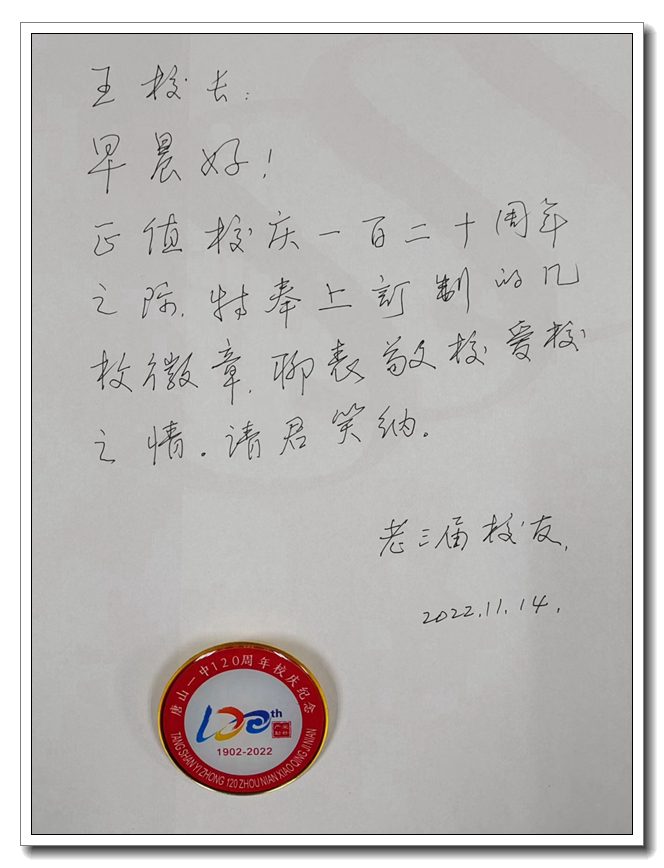 王校长:
早晨好!
正值校庆一百二十周年
之际,特奉上訂制的几
枚徽章,聊表敬校爱校
之情。请君笑纳。
老三届校友,
2022.11.14.
唐山一中120周年校庆纪念
120th
1902-2022
TANG SHAN YI ZHONG 120 ZHOU NIAN XIAO QING JI NIAN